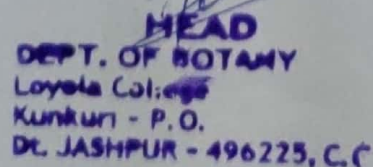 HEAD
DEPT. OF BOTANY
Loyola College
Kunkuri - P.O.
Dt. JASHPUR - 496225, C.C